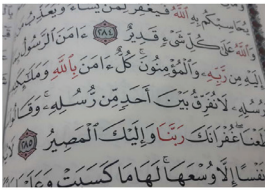 يُحَاسِبْكُم بِهِ ٱللَّهُ فَيَغْفِرُ لِمَن يَشَآءُ وَيُعَذِّبُ
ٱللَّهُ عَلَىٰ كُلِّ شَىْءٍ قَدِيرٌ ٢٨٤ ءَامَنَ ٱلرَّسُولُ
إِلَيْهِ مِن رَّبِّهِۦ وَٱلْمُؤْمِنُونَ كُلٌّ ءَامَنَ بِٱللَّهِ وَمَلَٰٓئِكَتِهِ
وَرُسُلِهِۦ لَا نُفَرِّقُ بَيْنَ أَحَدٍ مِّن رُّسُلِهِۦ وَقَالُوا۟
وَأَطَعْنَا غُفْرَانَكَ رَبَّنَا وَإِلَيْكَ ٱلْمَصِيرُ ٢٨٥
نَفْسًا إِلَّا وُسْعَهَا لَهَا مَا كَسَبَتْ وَعَلَيْهَا